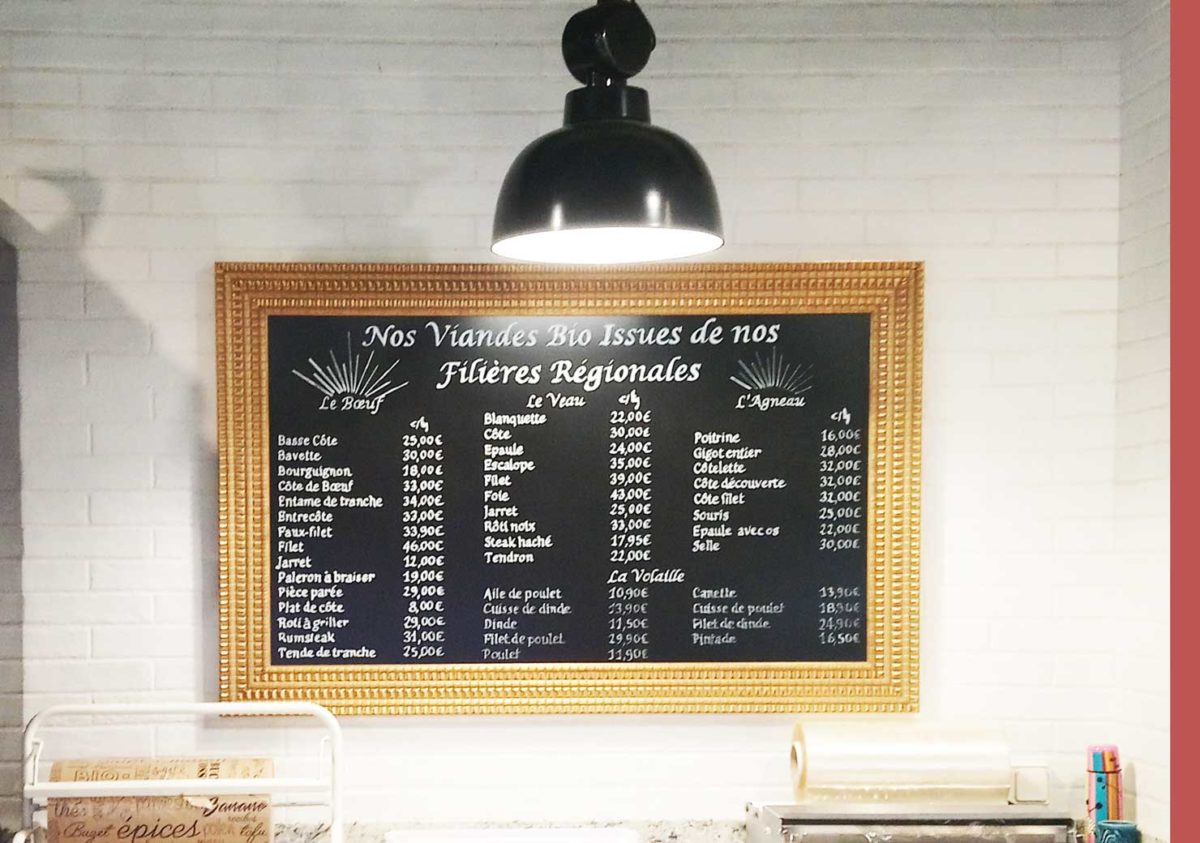 Nos Viandes Bio Issues de nos
Filières Régionales
Le Bœuf
c/kg
Basse Côte 25,00€
Bavette 30,00€
Bourguignon 18,00€
Côte de Bœuf 33,00€
Entame de tranche 34,00€
Entrecôte 33,00€
Faux-filet 33,90€
Filet 46,00€
Jarret 12,00€
Paleron à braiser 19,00€
Pièce parée 29,00€
Plat de côte 8,00€
Roti à griller 29,00€
Rumsteak 31,00€
Tende de tranche 25,00€
Le Veau c/kg
Blanquette 22,00€
Côte 30,00€
Epaule 24,00€
Escalope 35,00€
Filet 39,00€
Foie 43,00€
Jarret 25,00€
Rôti noix 33,00€
Steak haché 17,95€
Tendron 22,00€
L'Agneau
c/kg
Poitrine 16,00€
Gigot entier 28,00€
Côtelette 32,00€
Côte découverte 32,00€
Côte filet 32,00€
Souris 25,00€
Epaule avec os 22,00€
Selle 30,00€
La Volaille
Aile de poulet 10,90€
Cuisse de dinde 13,90€
Dinde 11,50€
Filet de poulet 29,90€
Poulet 11,90€
Canette 13,90€
Cuisse de poulet 18,90€
Filet de dinde 24,90€
Pintade 16,50€
BIO
thés
Banane
épices
tofu